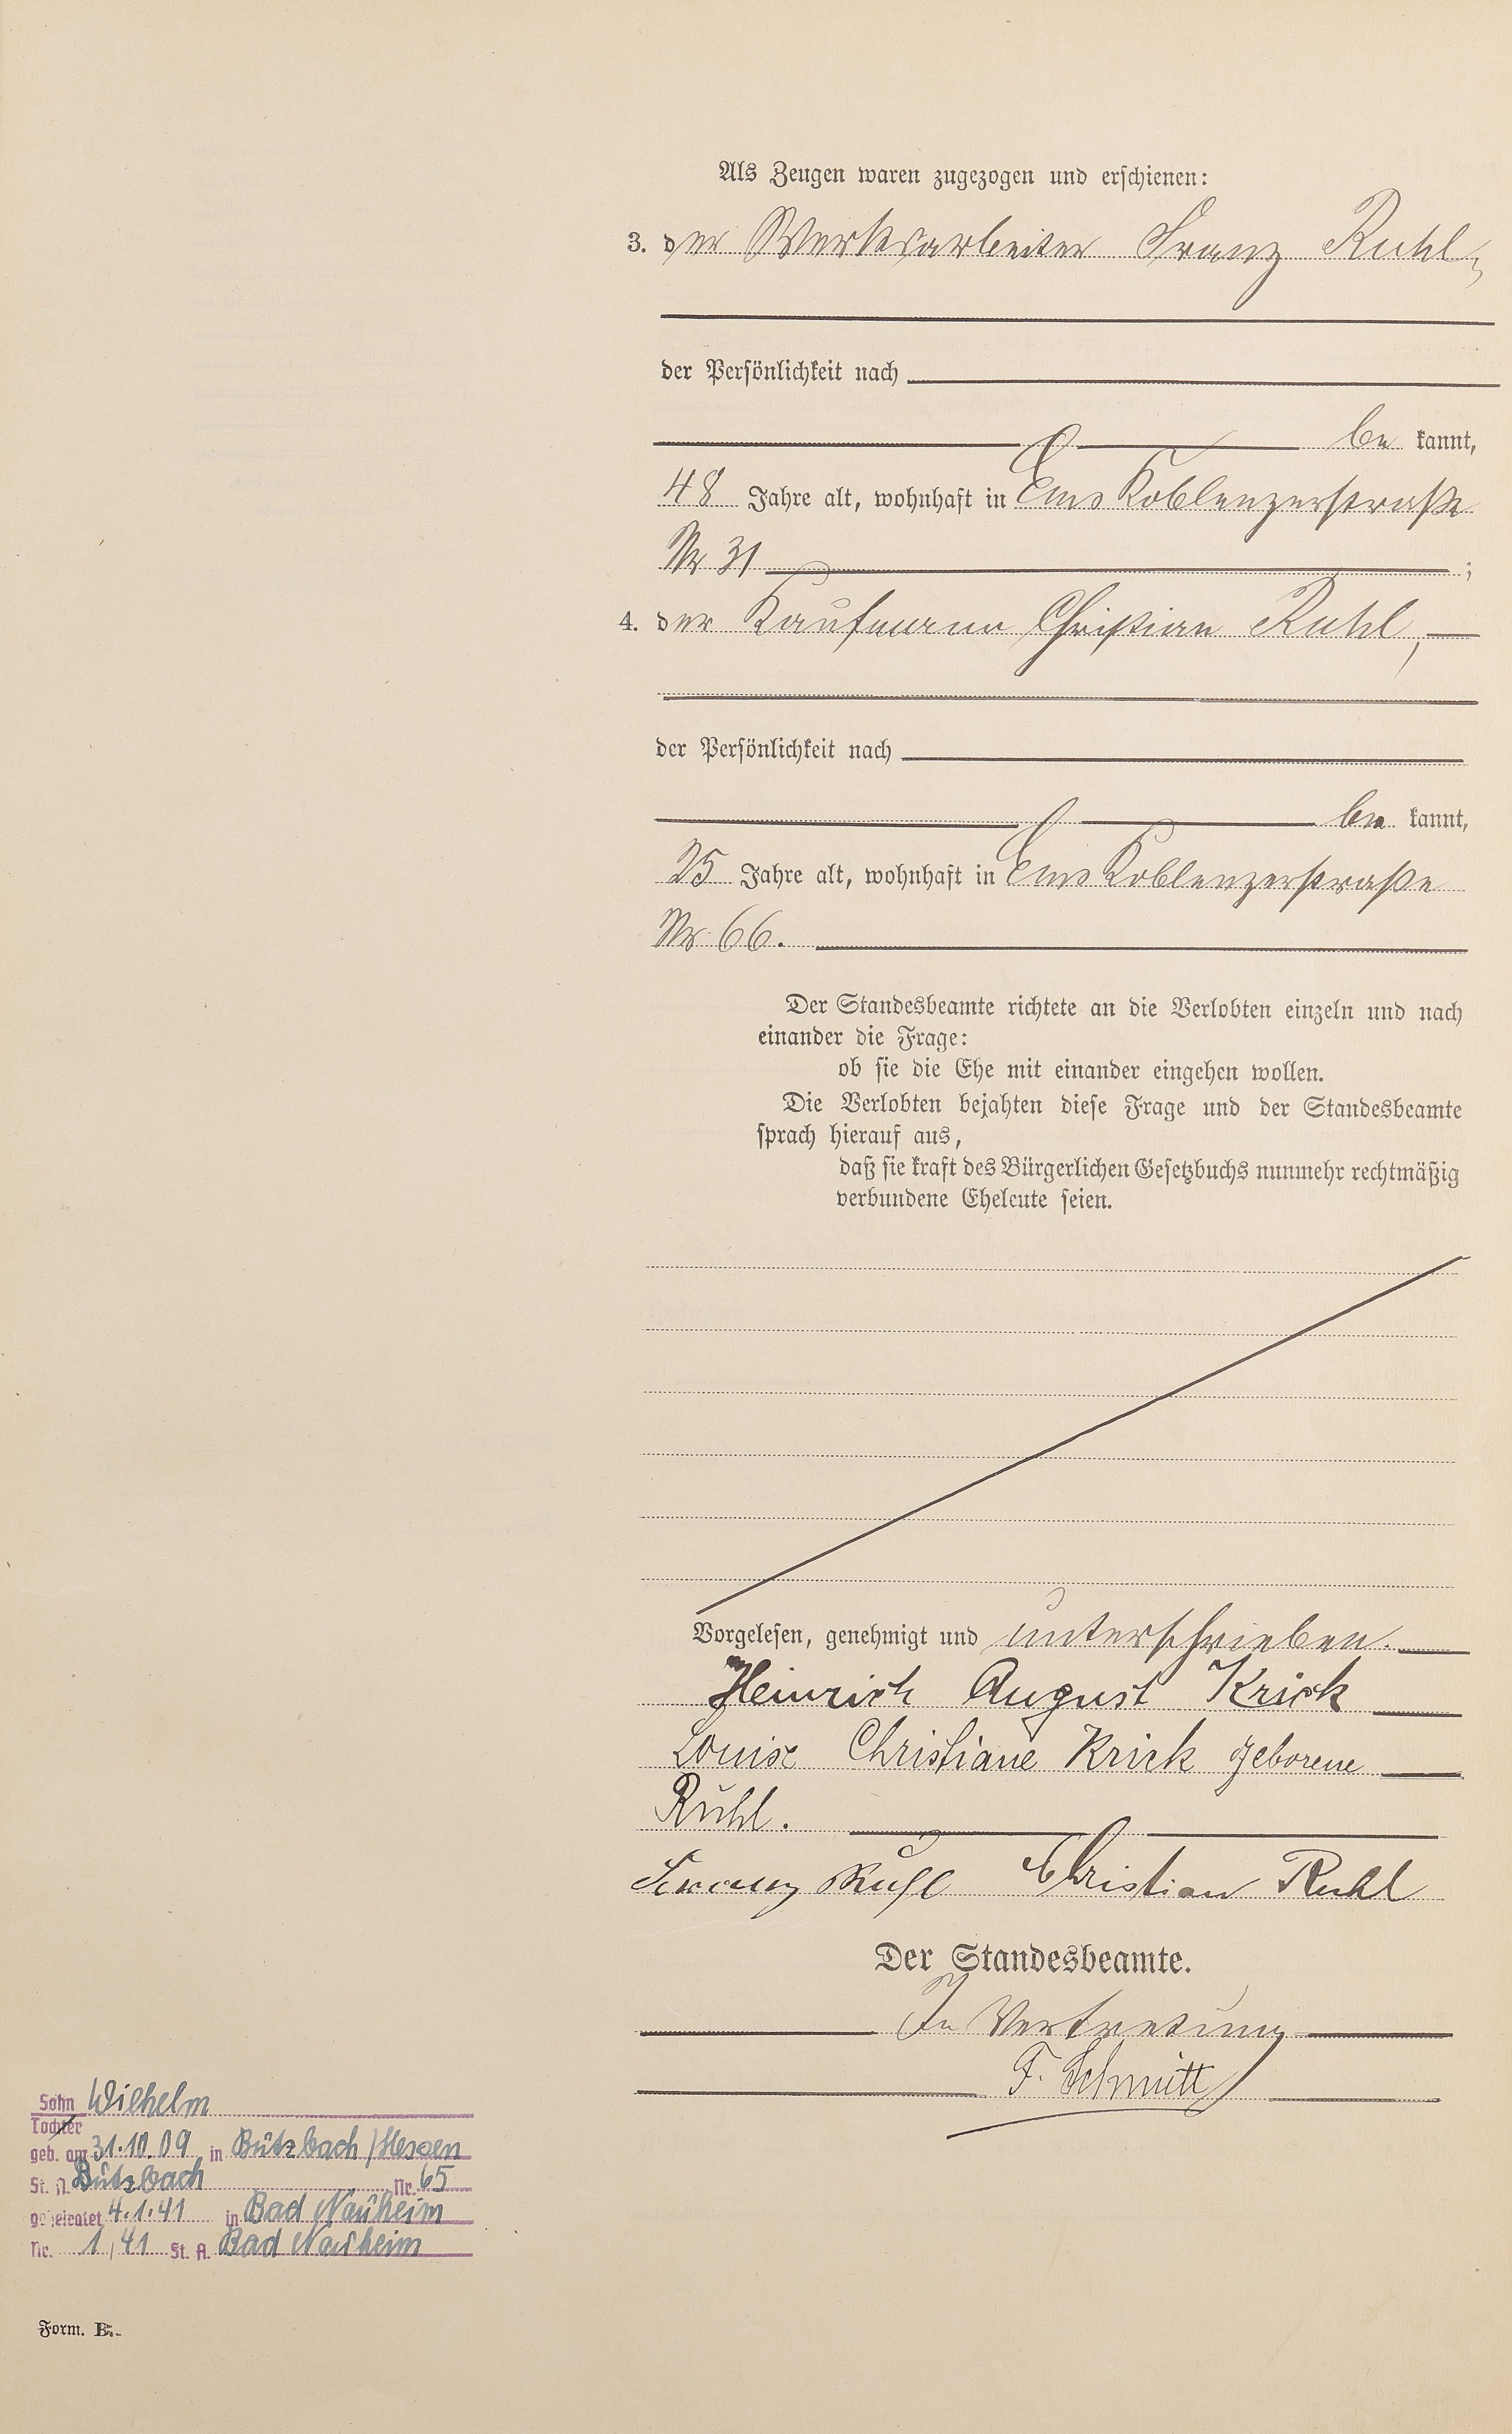 Als Zeugen waren zugezogen und erschienen:
3. der Werksarbeiter Franz Ruhl,
der Persönlichkeit nach
be kannt,
48 Jahre alt, wohnhaft in Ems Koblenzerstraße
Nr 31 ;
4. der Kaufmann Christian Ruhl,
der Persönlichkeit nach
be kannt,
25 Jahre alt, wohnhaft in Ems Koblenzerstraße
Nr 66.
Der Standesbeamte richtete an die Verlobten einzeln und nach
einander die Frage:
ob sie die Ehe mit einander eingehen wollen.
Die Verlobten bejahten diese Frage und der Standesbeamte
sprach hierauf aus,
daß sie kraft des Bürgerlichen Gesetzbuchs nunmehr rechtmäßig
verbundene Eheleute seien.
Vorgelesen, genehmigt und unterschrieben.
Heinrich August Krick
Louise Christiane Krick geborene
Ruhl.
Franz Ruhl Christian Ruhl
Der Standesbeamte.
In Vertretung
F. Schmitt
Sohn Wilhelm
Tochter
geb. am 31.10.09 in Butzbach/Hessen
St. A. Butzbach Nr. 65
geheiratet 4.1.41 in Bad Nauheim
Nr. 1/41 St. A. Bad Nauheim
Form. B.